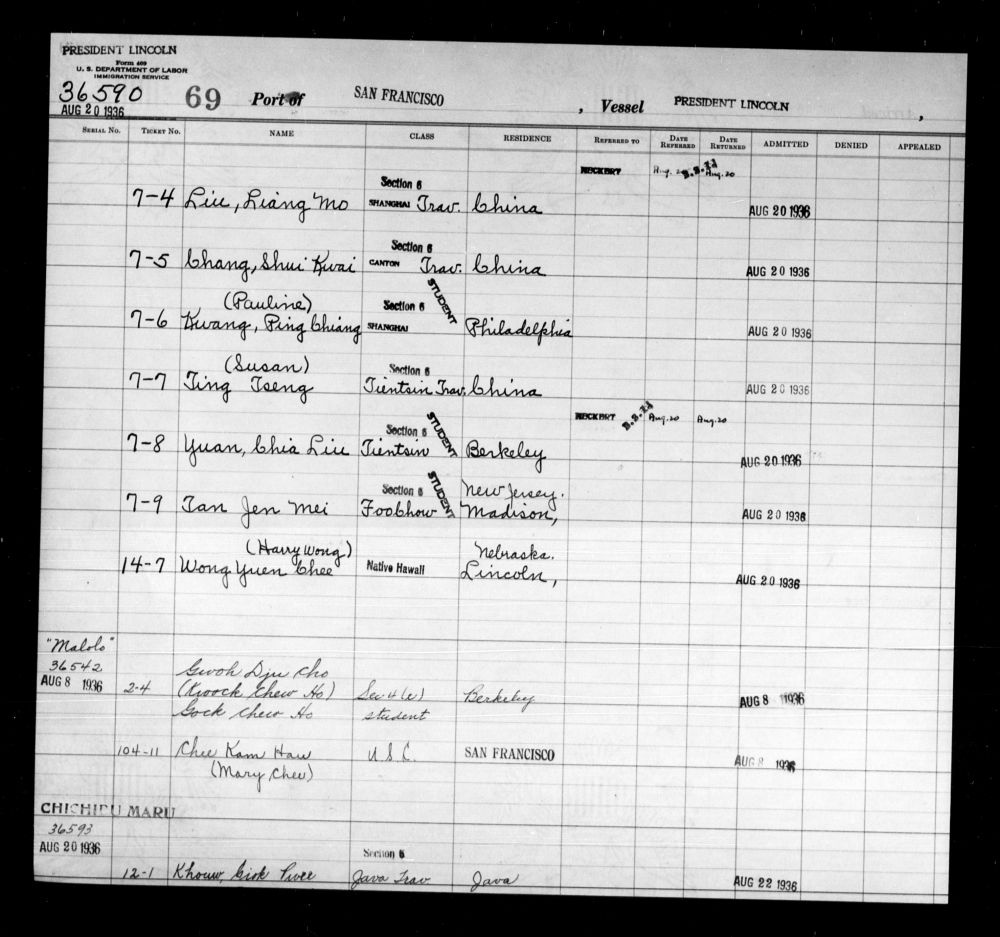 PRESIDENT LINCOLN
Form 409
U. S. DEPARTMENT OF LABOR
IMMIGRATION SERVICE
36590 69 Port of SAN FRANCISCO , Vessel PRESIDENT LINCOLN ,
AUG 20 1936
SERIAL NO. TICKET NO. NAME CLASS RESIDENCE REFERRED TO DATE REFERRED DATE RETURNED ADMITTED DENIED APPEALED
Section 6 HECKERT Aug. 20 Aug. 20
7-4 Liu, Liang Mo SHANGHAI Trav. China AUG 20 1936
Section 6
7-5 Chang, Shui Kwai CANTON Trav. China AUG 20 1936
(Pauline) Section 6 STUDENT
7-6 Kwang, Ping Chiang SHANGHAI Philadelphia AUG 20 1936
(Susan) Section 6
7-7 Ting Tseng Tientsin Trav. China AUG 20 1936
Section 6 STUDENT HECKERT Aug. 20 Aug. 20
7-8 Yuan, Chia Liu Tientsin Berkeley AUG 20 1936
Section 6 STUDENT New Jersey.
7-9 Tan Jen Mei Foochow Madison, AUG 20 1936
(Harry Wong) Nebraska.
14-7 Wong Yuen Chee Native Hawaii Lincoln, AUG 20 1936
"Malolo"
36542
AUG 8 1936
Gwoh Dju Cho
2-4 (Kwock Chew Ho) Sec 4 (e) Berkeley AUG 8 1936
Gock Chew Ho student
104-11 Chee Kam Hau U S C. SAN FRANCISCO AUG 8 1936
(Mary Chee)
CHICHIBU MARU
36593
AUG 20 1936
Section 6
12-1 Khouw, Giok Java Trav. Java AUG 22 1936